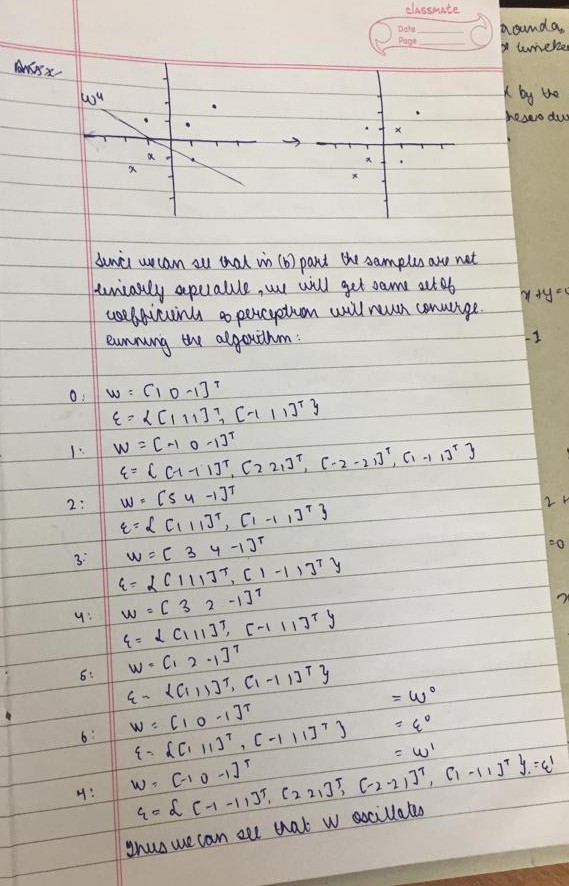 classmate
Date
Page
Ans5x
w⁴
x
x
x
x
x
Since we can see that in (b) part the samples are not
linearly seperable, we will get same set of
coefficients & perceptron will never converge.
Running the algorithm:
0: W = [1 0 -1]ᵀ
ε = { [1 1 1]ᵀ, [-1 1 1]ᵀ }
1: W = [-1 0 -1]ᵀ
ε = { [-1 -1 1]ᵀ, [2 2 1]ᵀ, [-2 -2 1]ᵀ, [1 -1 1]ᵀ }
2: W = [5 4 -1]ᵀ
ε = { [1 1 1]ᵀ, [1 -1 1]ᵀ }
3: W = [3 4 -1]ᵀ
ε = { [1 1 1]ᵀ, [1 -1 1]ᵀ }
4: W = [3 2 -1]ᵀ
ε = { [1 1 1]ᵀ, [-1 1 1]ᵀ }
5: W = [1 2 -1]ᵀ
ε = { [1 1 1]ᵀ, [1 -1 1]ᵀ }
6: W = [1 0 -1]ᵀ = W⁰
ε = { [1 1 1]ᵀ, [-1 1 1]ᵀ } = ε⁰
7: W = [-1 0 -1]ᵀ = W¹
ε = { [-1 -1 1]ᵀ, [2 2 1]ᵀ, [-2 -2 1]ᵀ, [1 -1 1]ᵀ } = ε¹
Thus we can see that W oscillates
by the
x+y=
-1
=0